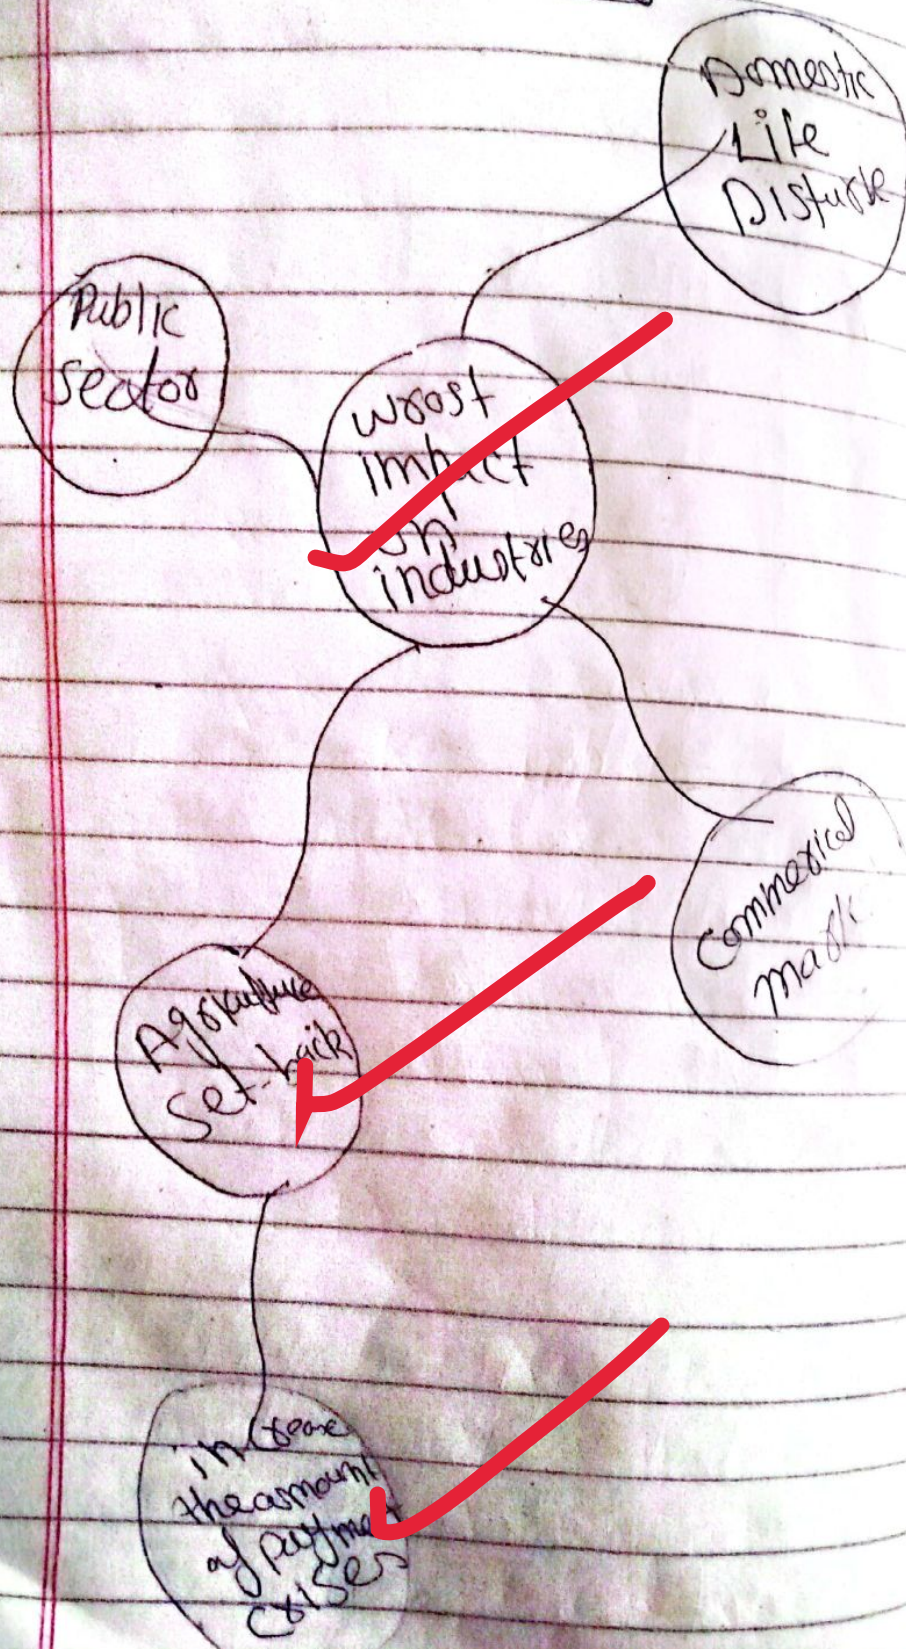 Domestic
Life
Disturbe
Public
Sector
wrost
impact
on
industries
Commerical
Agriculture
Set-back
increase
the amount
of payment
crises